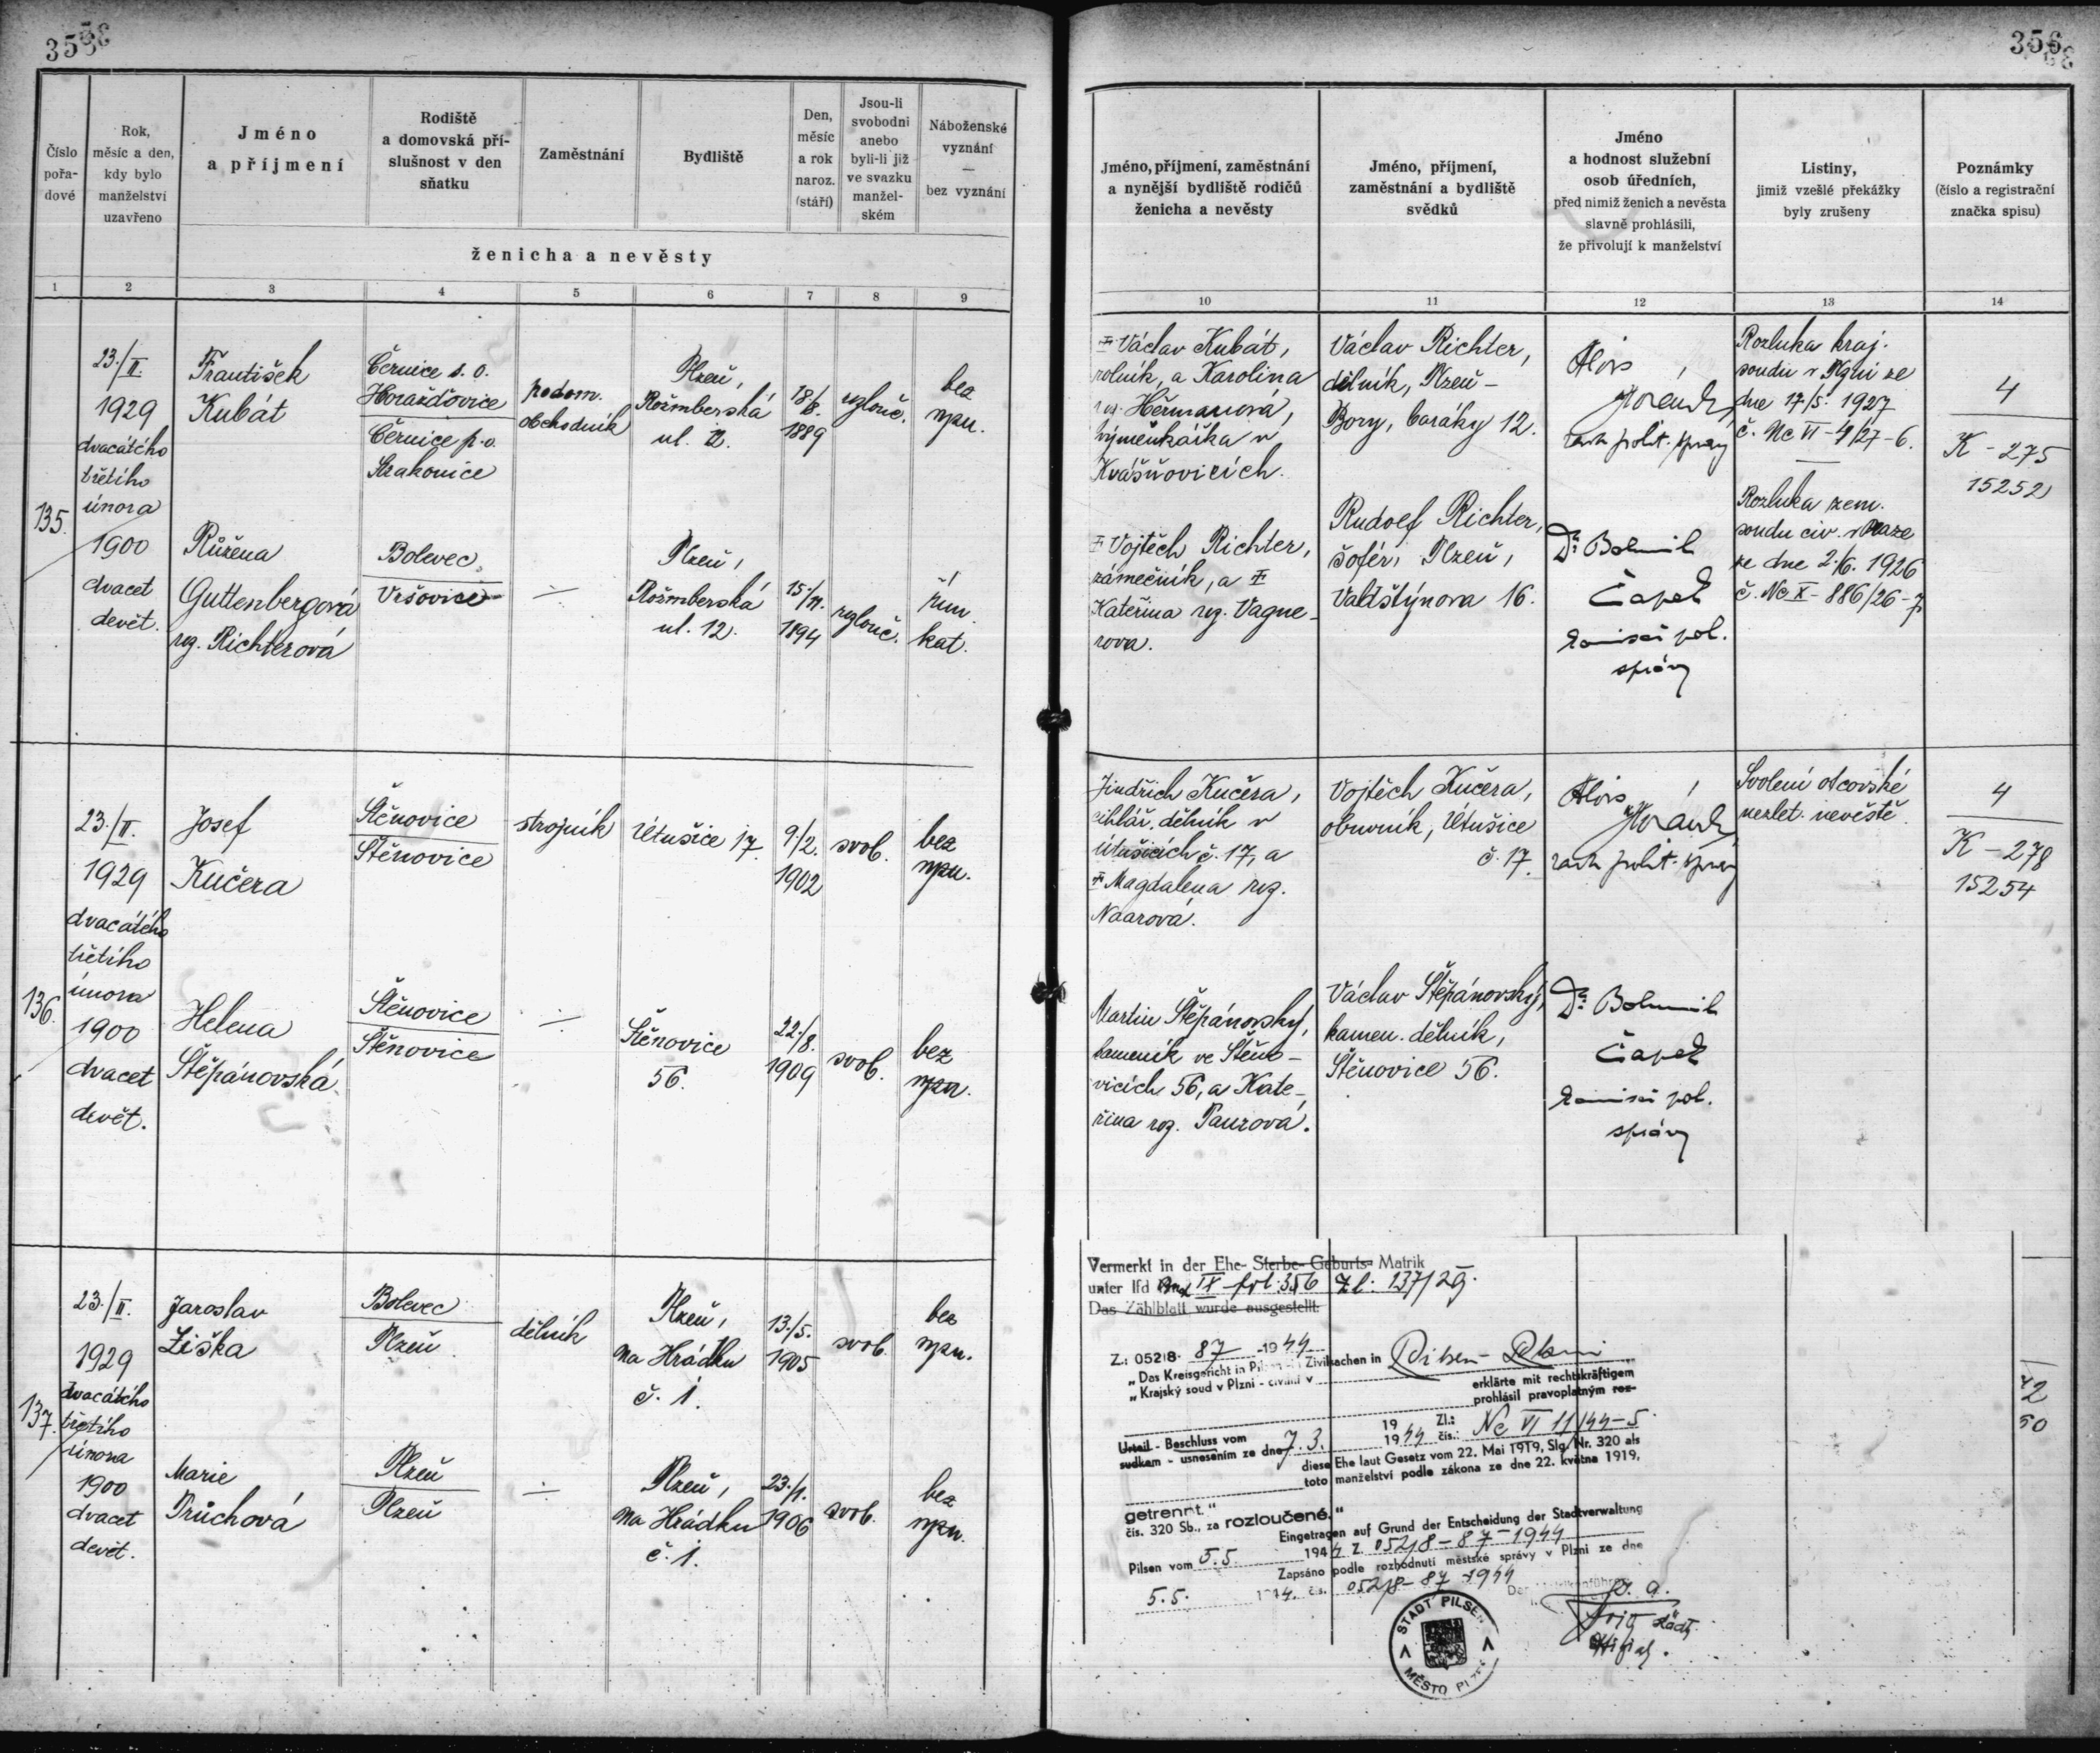 355
356
Číslo pořa-dové
Rok, měsíc a den, kdy bylo manželství uzavřeno
Jméno a příjmení
Rodiště a domovská pří-slušnost v den sňatku
Zaměstnání
Bydliště
Den, měsíc a rok naroz. (stáří)
Jsou-li svobodni anebo byli-li již ve svazku manžel-ském
Náboženské vyznání — bez vyznání
ženicha a nevěsty
1 2 3 4 5 6 7 8 9
135.
23./II.
1929
dvacátého
třetího
února
1900
dvacet
devět.
František
Kubát
Černice s. o.
Horažďovice
Černice p. o.
Strakonice
podom.
obchodník
Plzeň,
Rožmberská
ul. 12.
18/8.
1889
rozlouč.
bez
vyzn.
Růžena
Guttenbergová
roz. Richterová
Bolevec
Vršovice
Plzeň,
Rožmberská
ul. 12.
1894
rozlouč.
řím.
kat.
136.
23./II.
1929
dvacátého
třetího
února
1900
dvacet
devět.
Josef
Kučera
Štěnovice
Štěnovice
strojník
Útušice 17.
9./2.
1902
svob.
bez
vyzn.
Helena
Štěpánovská
Štěnovice
Štěnovice
Štěnovice
56.
22./8.
1909
svob.
bez
vyzn.
137.
23./II.
1929
dvacátého
třetího
února
1900
dvacet
devět.
Jaroslav
Žiška
Bolevec
Plzeň
dělník
Plzeň,
na Hrádku
č. 1.
13./5.
1905
svob.
bez
vyzn.
Marie
Průchová
Plzeň
Plzeň
Plzeň,
na Hrádku
č. 1.
23./1.
1906
svob.
bez
vyzn.
Jméno, příjmení, zaměstnání a nynější bydliště rodičů ženicha a nevěsty
Jméno, příjmení, zaměstnání a bydliště svědků
Jméno a hodnost služební osob úředních, před nimiž ženich a nevěsta slavně prohlásili, že přivolují k manželství
Listiny, jimiž vzešlé překážky byly zrušeny
Poznámky (číslo a registrační značka spisu)
10 11 12 13 14
Václav Kubát,
rolník, a Karolina
roz. Heřmanová,
výměnkářka v
Kvášňovicích.
Václav Richter,
dělník, Plzeň –
Bory, baráky 12.
Alois
rada polit. správy
Rozluka kraj.
soudu v Plzni ze
dne 17/5. 1927
č. Nc VI – 4/27 – 6.
4
K – 275
15252
Vojtěch Richter,
zámečník, a
Kateřina roz. Vagne-
rova.
Rudolf Richter,
šofér, Plzeň,
Valdštýnova 16.
Dr. Bohumil
Čapek
komisař pol.
správy
Rozluka zem.
soudu civ. v Praze
ze dne 2./6. 1926
č. Nc X – 886/26 – 7
Jindřich Kučera,
cihlář. dělník v
Útušicích č. 17, a
Magdalena roz.
Naarová.
Vojtěch Kučera,
obuvník, Útušice
č. 17.
Alois
rada polit. správy
Svolení otcovské
nezlet. nevěstě.
4
K – 278
15254
Martin Štěpánovský,
kameník ve Štěno-
vicích 56, a Kate-
řina roz. Paurová.
Václav Štěpánovský,
kamen. dělník,
Štěnovice 56.
Dr. Bohumil
Čapek
komisař pol.
správy
Vermerkt in der Ehe- Sterbe- Geburts- Matrik
unter lfd IX fol: 356 Zl: 137/29.
Das Zählblatt wurde ausgestellt.
Z.: 05218- 87 -1944
„Das Kreisgericht in Pilsen - Zivilsachen in Pilsen - Plzni
„Krajský soud v Plzni - civilní v
erklärte mit rechtskräftigem
prohlásil pravoplatným roz-
Urteil - Beschluss vom 19 Zl.:
sudkem - usnesením ze dne 7. 3. 1944 čís.: Nc VI 11/44–5
diese Ehe laut Gesetz vom 22. Mai 1919, Slg. Nr. 320 als
toto manželství podle zákona ze dne 22. května 1919,
getrennt.“
čís. 320 Sb., za rozloučené.“
Eingetragen auf Grund der Entscheidung der Stadtverwaltung
Pilsen vom 5.5. 1944 Z. 0521/8 – 87 – 1944
Zapsáno podle rozhodnutí městské správy v Plzni ze dne
5.5. 1944. čís. 0521/8 – 87 – 1944
STADT PILSEN
MĚSTO PLZEŇ